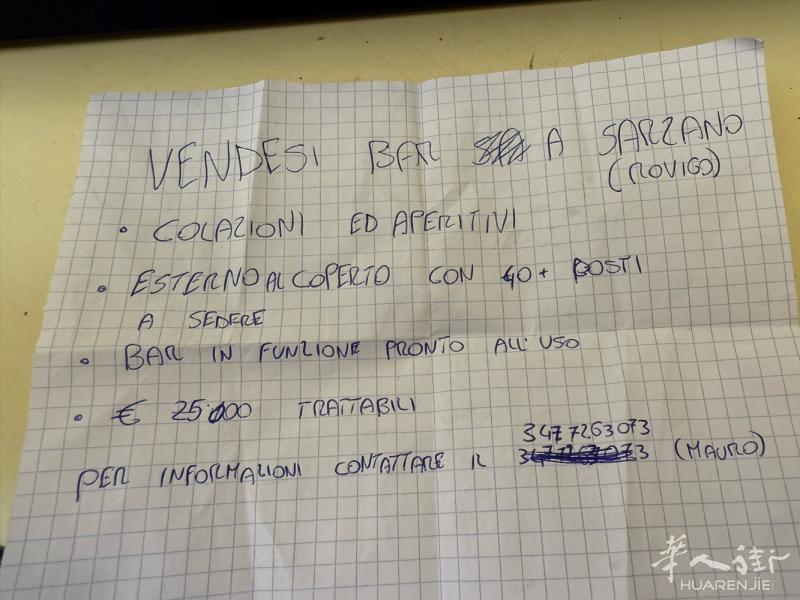 VENDESI BAR A SARZANO
(ROVIGO)
• COLAZIONI ED APERITIVI
• ESTERNO AL COPERTO CON 40+ POSTI
A SEDERE
• BAR IN FUNZIONE PRONTO ALL'USO
• € 25.000 TRATTABILI
3477263073
PER INFORMAZIONI CONTATTARE IL 3477263073 (MAURO)
華人街
HUARENJIE